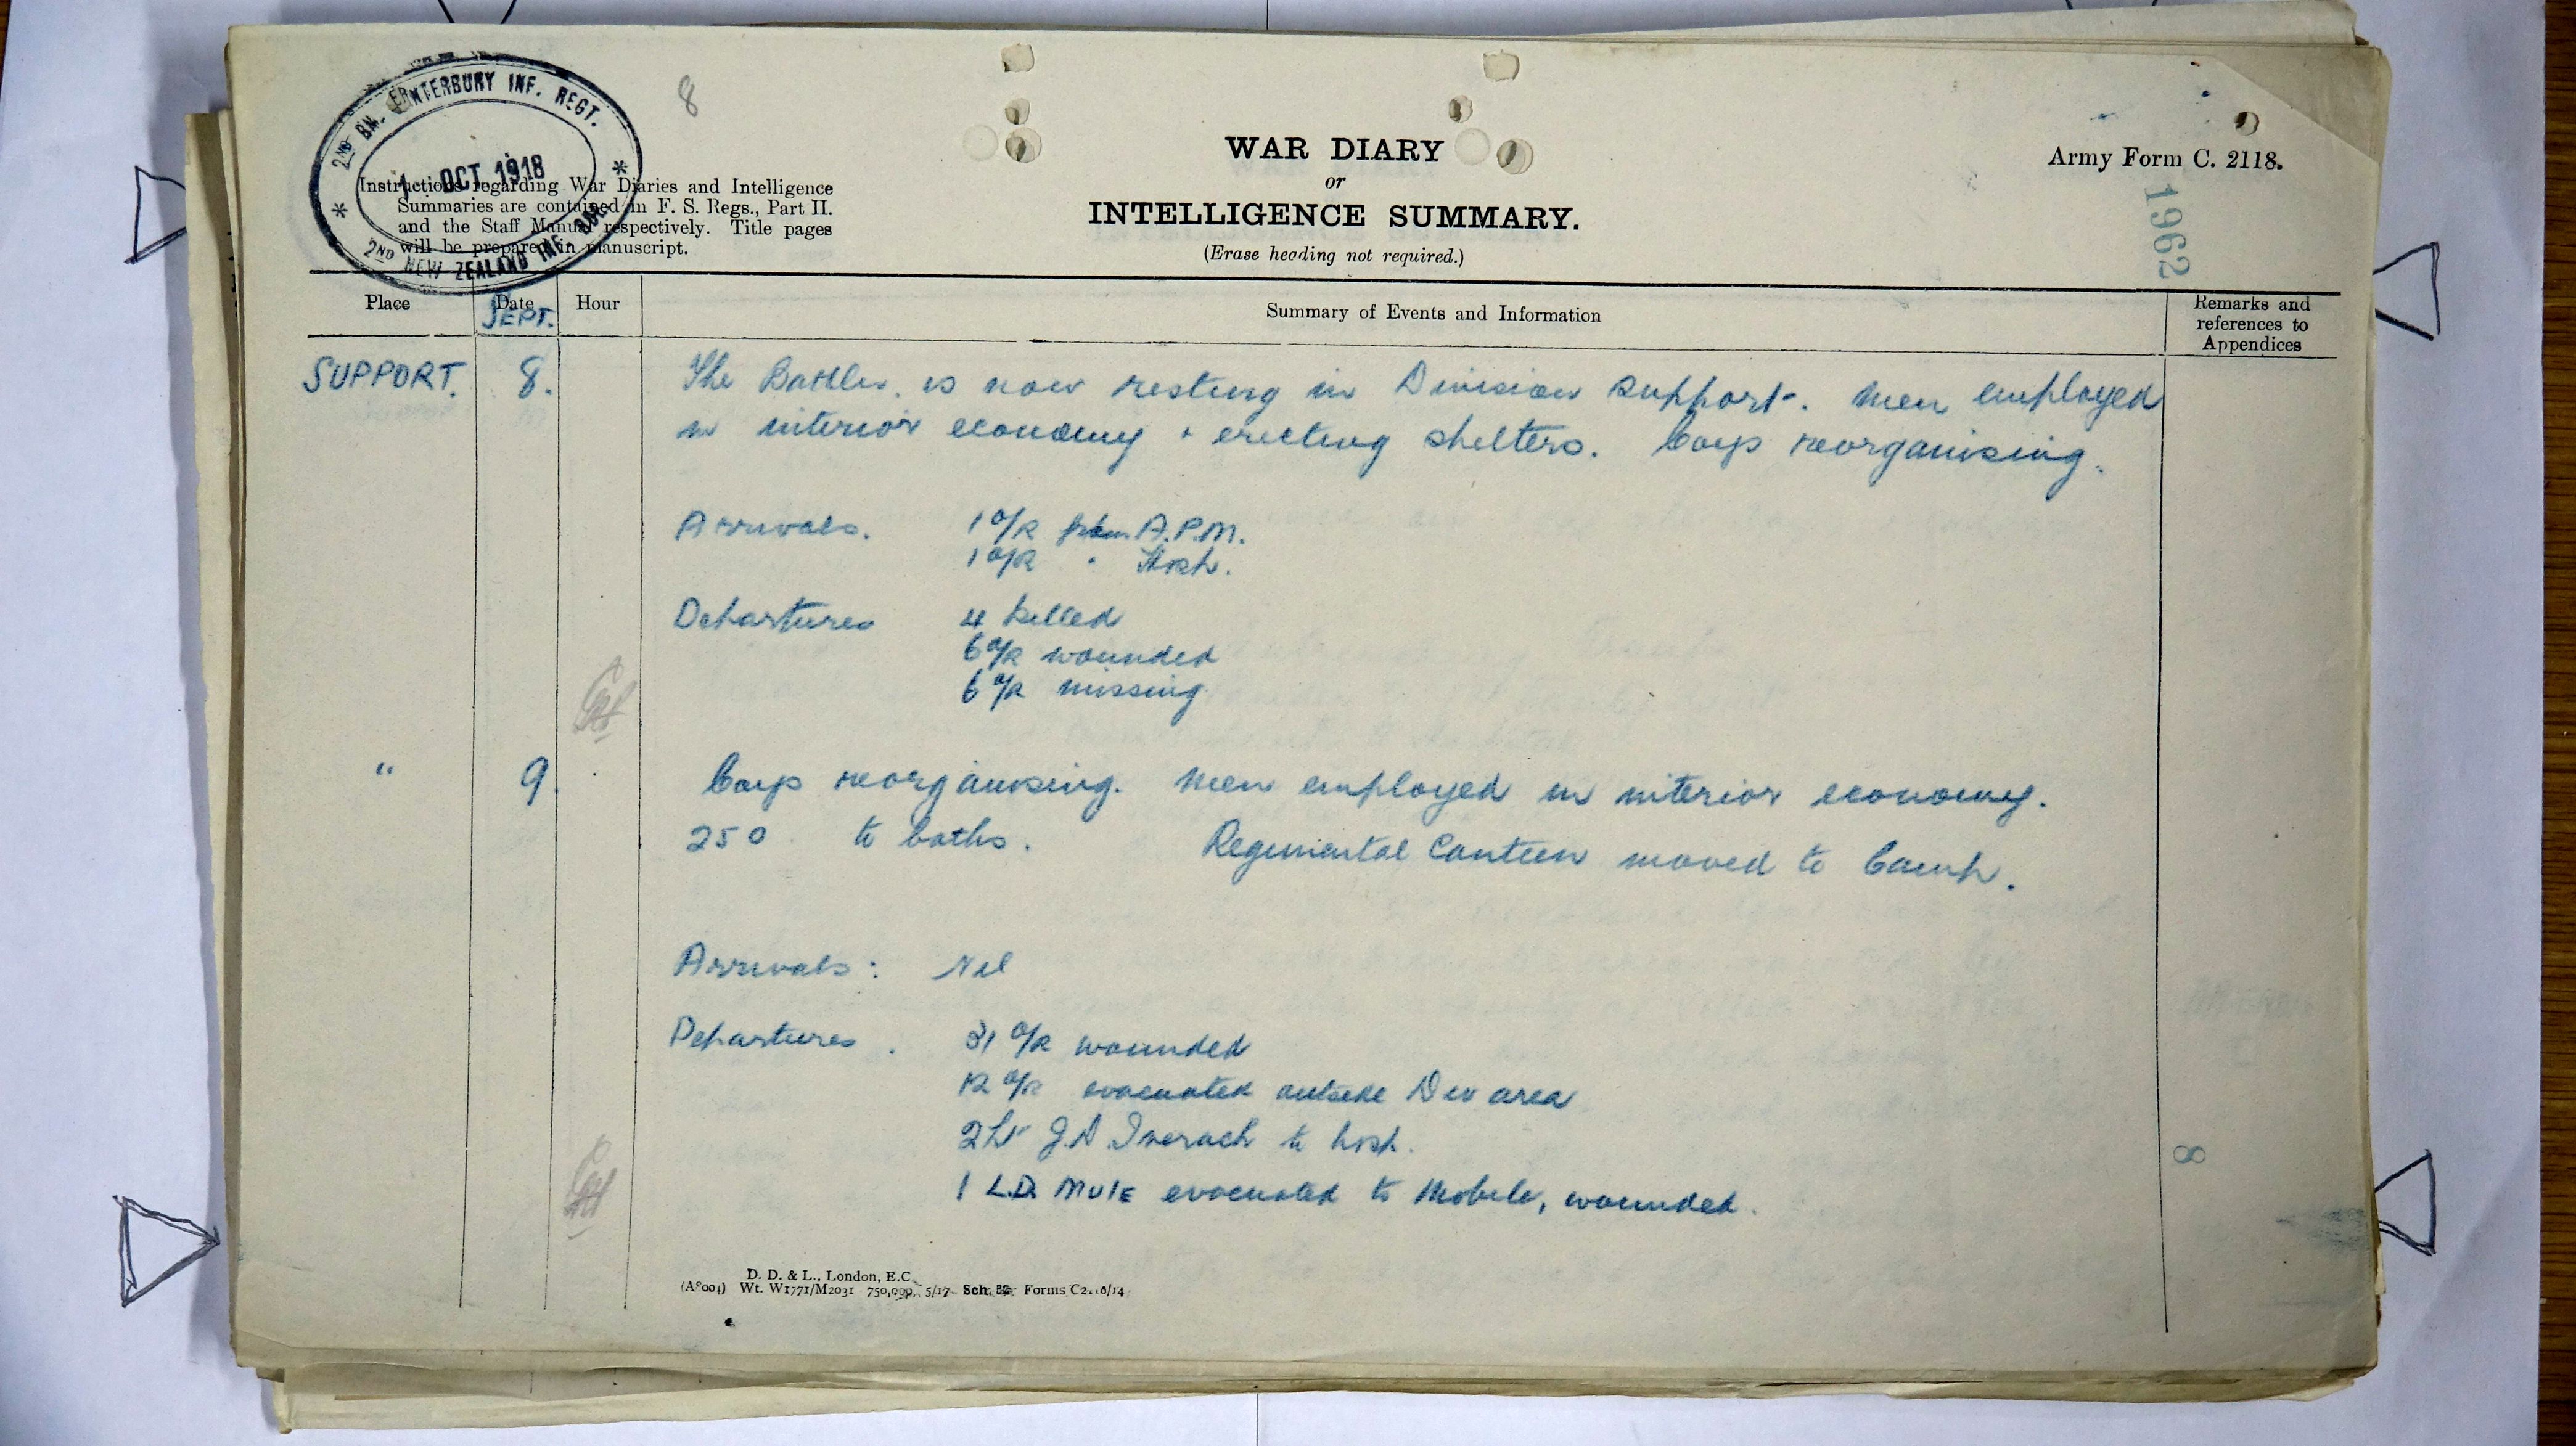 2ND BN. CANTERBURY INF. REGT.
1 OCT 1918
2ND NEW ZEALAND INF. BDE.
8
WAR DIARY
or
INTELLIGENCE SUMMARY.
(Erase heading not required.)
Army Form C. 2118.
1962
Instructions regarding War Diaries and Intelligence
Summaries are contained in F. S. Regs., Part II.
and the Staff Manual respectively. Title pages
will be prepared in manuscript.
Place Date Hour Summary of Events and Information Remarks and references to Appendices
SEPT.
SUPPORT. 8. The Battln. is now resting in Division support. Men employed
in interior economy + erecting shelters. Coys reorganising.
Arrivals. 1 O/R from A.P.M.
1 O/R " Hosp.
Departures 4 killed
6 O/R wounded
6 O/R missing
" 9. Coys reorganising. Men employed in interior economy.
250 to baths. Regimental Canteen moved to Camp.
Arrivals: Nil
Departures. 31 O/R wounded
12 O/R evacuated outside Div area
2Lt J.D. Inverach to hosp.
1 L.D. MULE evacuated to Mobile, wounded.
8
D. D. & L., London, E.C.
(A8004) Wt. W1771/M2031 750,000 5/17 Sch. 52 Forms C2118/14